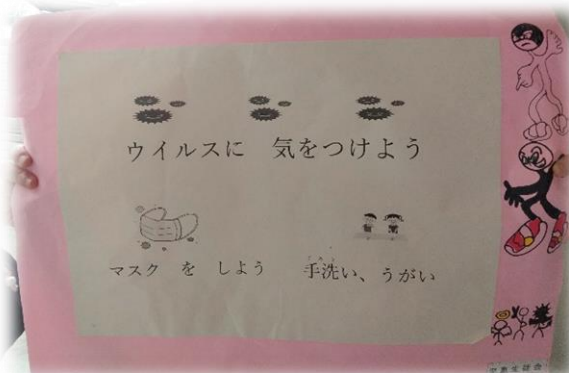 ウイルスに 気をつけよう
マスク を しよう 手洗い、うがい